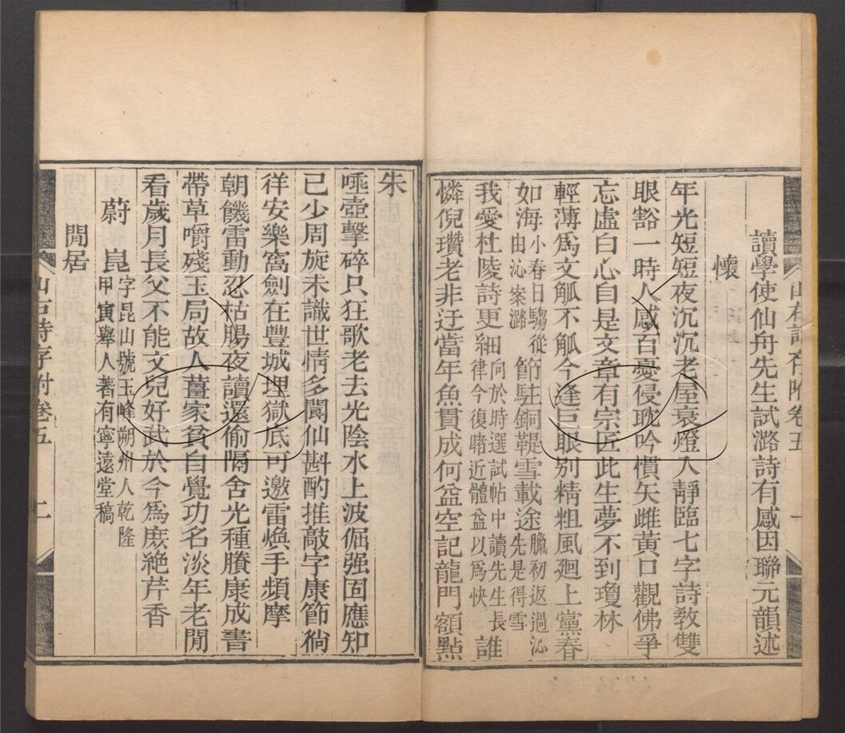 山右詩存附卷五
一
讀學使仙舟先生試潞詩有感因聯元韻述
懷
年光短短夜沉沉老屋衰燈人靜臨七字詩教雙
眼豁一時人感百憂侵耽吟慣矢雌黃口觀佛爭
忘虛白心自是文章有宗匠此生夢不到瓊林
輕薄為文觚不觚今逢巨眼別精粗風廻上黨春
如海小春日騶從由沁案潞節駐銅鞮雪載途臘初返過沁先是得雪
我愛杜陵詩更細向於時選試帖中讀先生長律今復睹近體益以為快誰
憐倪瓚老非迂當年魚貫成何益空記龍門額點
朱
唾壺擊碎只狂歌老去光陰水上波倔强固應知
已少周旋未識世情多閬仙斟酌推敲字康節徜
徉安樂窩劍在豐城埋獄底可邀雷煥手頻摩
朝饑雷動忍枯腸夜讀還偷隔舍光種賸康成書
帶草嚼殘玉局故人薑家貧自覺功名淡年老閒
看歲月長父不能文兒好武於今為庶絶芹香
蔚崑字昆山號玉峰朔州人乾隆甲寅舉人著有寧遠堂稿
閒居
山右詩存附卷五
二